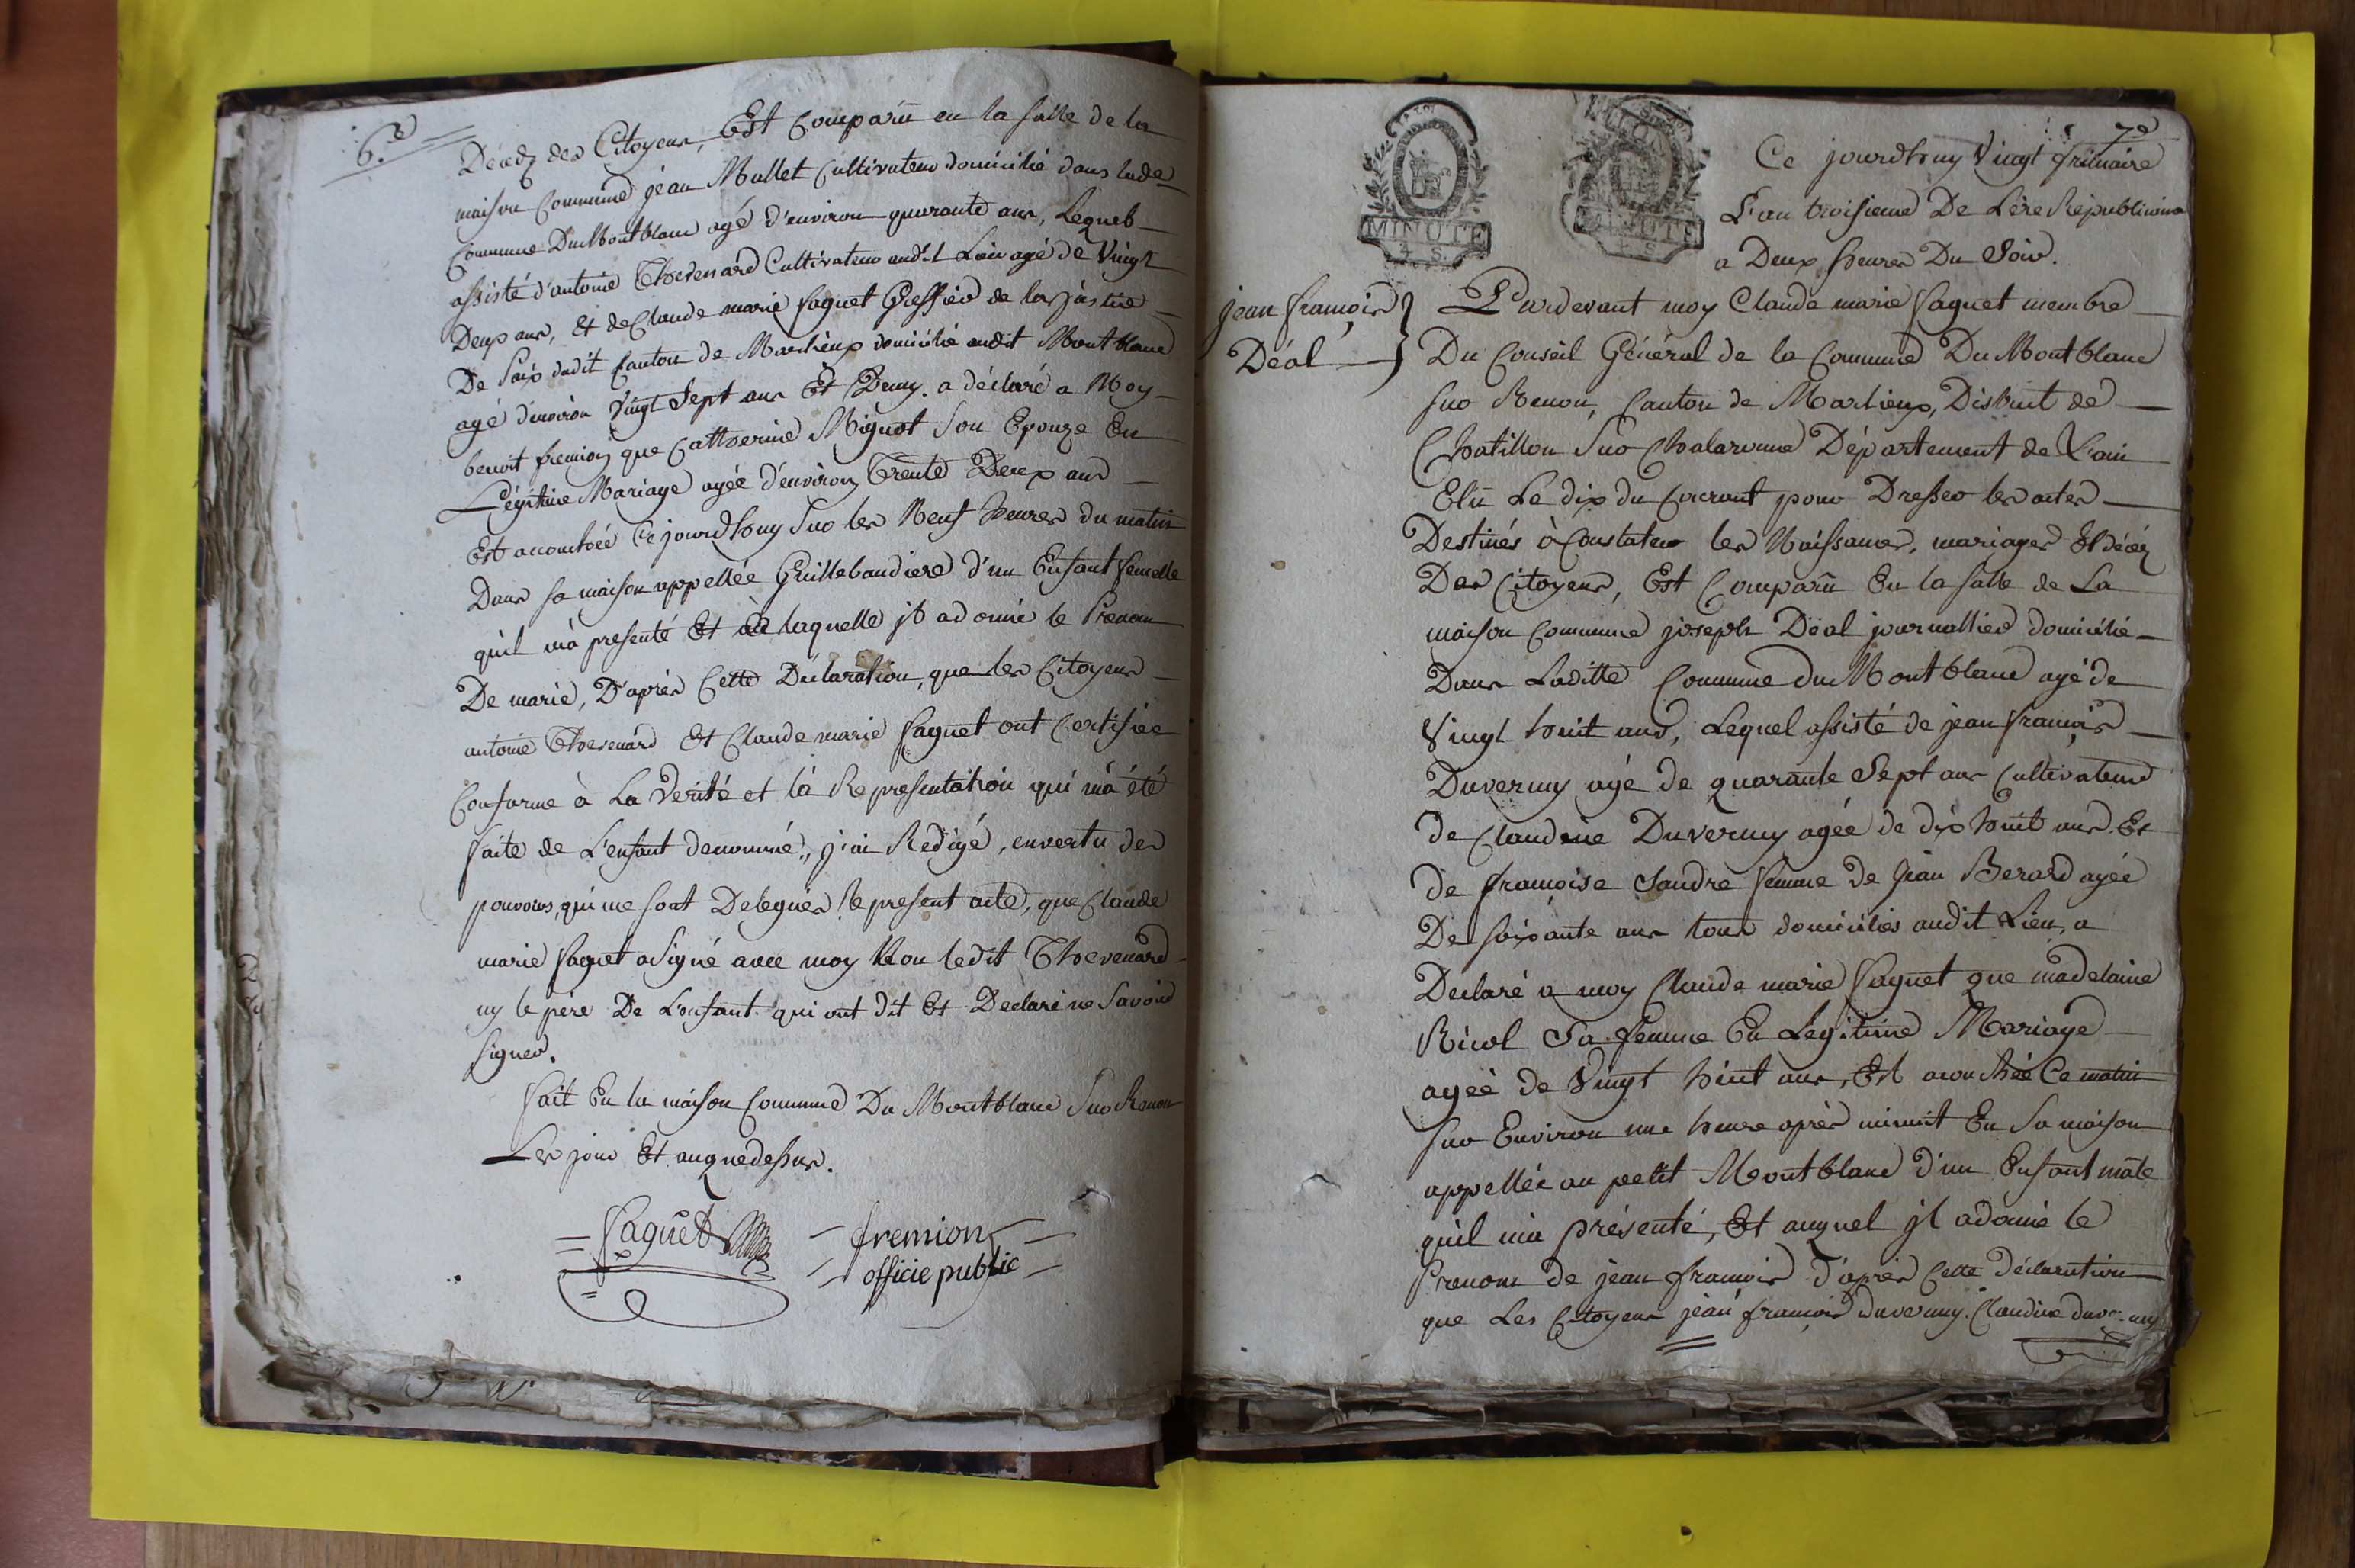 6.e
Décedz des Citoyens, Est Comparû en la salle de la
maison Commune jean Mallet Cultivateur domicilié dans lade
Commune Du Montblanc agé d'environ quarante ans, Lequel
assisté d'antoine Thevenard Cultivateur audit Lieu agé de Vingt
Deux ans, Et de Claude marie Saguet Greffier de la justice
De Paix dudit Canton de Marlieux domicilié audit Montblanc
agé d'environ Vingt Sept ans Et Demy. a déclaré a Moy
benoit fremion que Catherine Mignot Son Epouze En
Légitime Mariage agée d'environ Trente Deux ans
Est accouchée Ce jourdhuy Sur les Neuf heures du matin
Dans sa maison appellée Guillebaudiere d'un Enfant femelle
quil m'a presenté Et a laquelle jl adonné le Prenom
De marie, D'après Cette Déclaration, que les Citoyens
antoine Thevenard Et Claude marie Saguet ont Certifiée
Conforme à La Verité et la Representation qui m'a été
faite de L'enfant denommé., j'ai Redigé, envertu des
pouvoirs, qui me sont Delegués le present acte, que Claude
marie Saguet a Signé avec moy Non ledit Thevenard
ny le père De L'enfant. qui ont dit Et Declaré ne Savoir
signer.
fait En la maison Commune Du Montblanc Sur Renon
Les jour Et anque dessus.
Saguet fremion
officie public
7.e
Ce jourdhuy Vingt frimaire
L'an troisieme De L'ère Républicaine
a Deux heures Du Soir.
jean françois
Déal
Pardevant moy Claude marie Saguet membre
Du Conseil Général de la Commune Du Montblanc
sur Renon, Canton de Marlieux, District de
Chatillon Sur Chalaronne Département de L'ain
Elû Le dix du Courant pour Dresser les actes
Destinés à Constater les Naissances, mariages Et décéz
Des Citoyens, Est Comparû En la salle de La
maison Commune joseph Déal journallier domicilié
Dans Laditte Commune du Montblanc agé de
Vingt huit ans, Lequel assisté de jean françois
Duverny agé de quarante Sept ans Cultivateur
de Claudine Duverny agée de dix huit ans. Et
de françoise Sandre femme de Jean Berard agée
De soixante ans tous domiciliés audit Lieu, a
Declaré a moy Claude marie Saguet que madelaine
Ricol Sa femme En Légitime Mariage
agée de Vingt huit ans, Est acouchée Ce matin
sur Environ une heure après minuit En Sa maison
appellée au petit Montblanc d'un Enfant mâle
quil m'a présenté, Et auquel jl adonné le
Prenom de jean françois d'après Cette déclaration
que Les Citoyens jean françois duverny. Claudine duverny
MINUTE
4 S.
MINUTE
4 S.